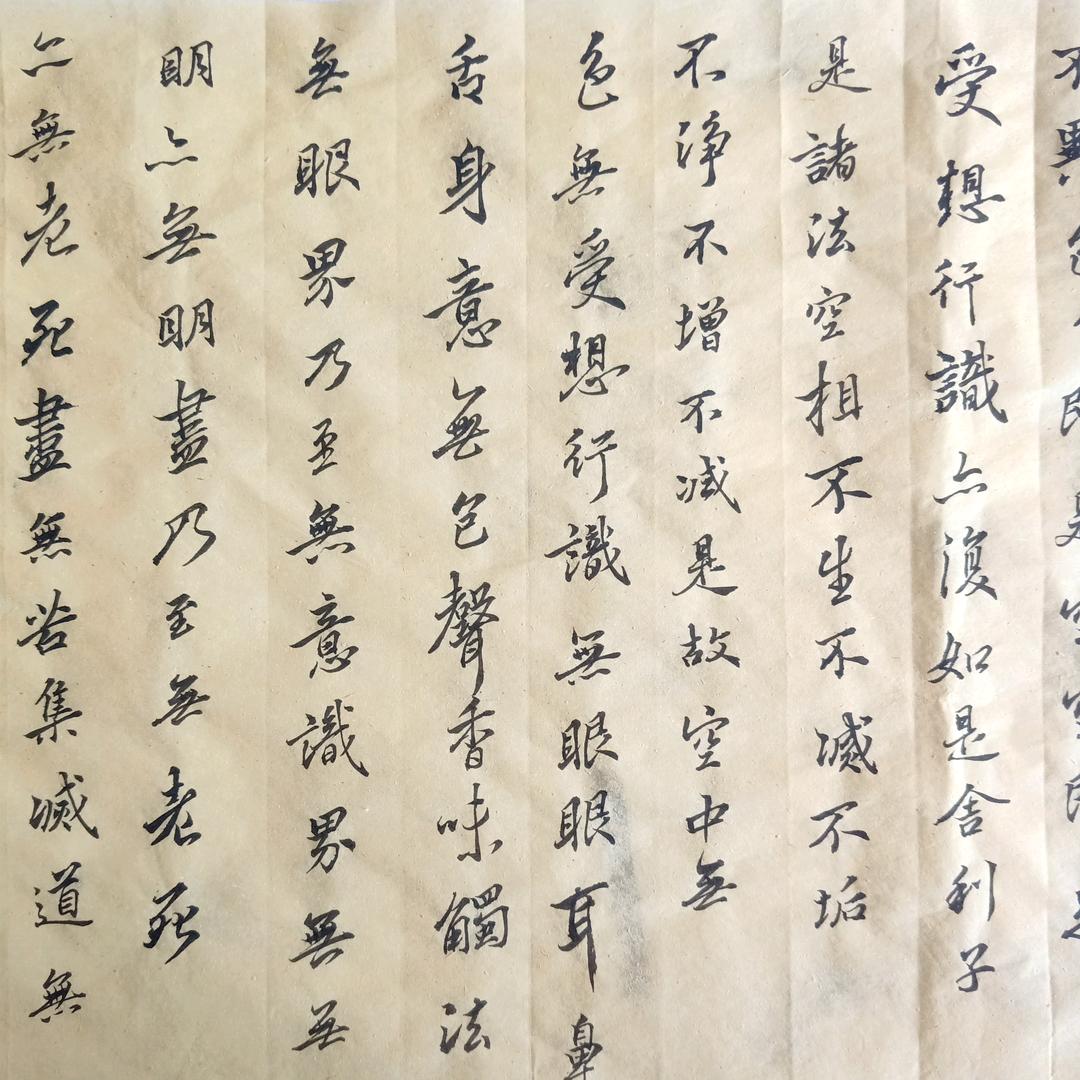 不異色即是空空即是
受想行識亦復如是舍利子
是諸法空相不生不滅不垢
不淨不增不減是故空中無
色無受想行識無眼眼耳鼻
舌身意無色聲香味觸法
無眼界乃至無意識界無無
明亦無明盡乃至無老死
亦無老死盡無苦集滅道無